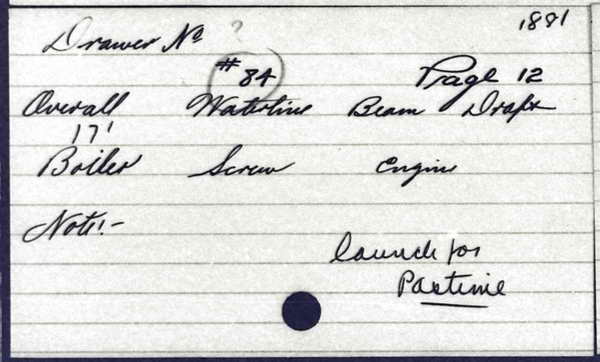 1881
Drawer No ?
#84 Page 12
Overall Waterline Beam Draft
17'
Boiler Screw Engine
Note:-
launch for
Pastime